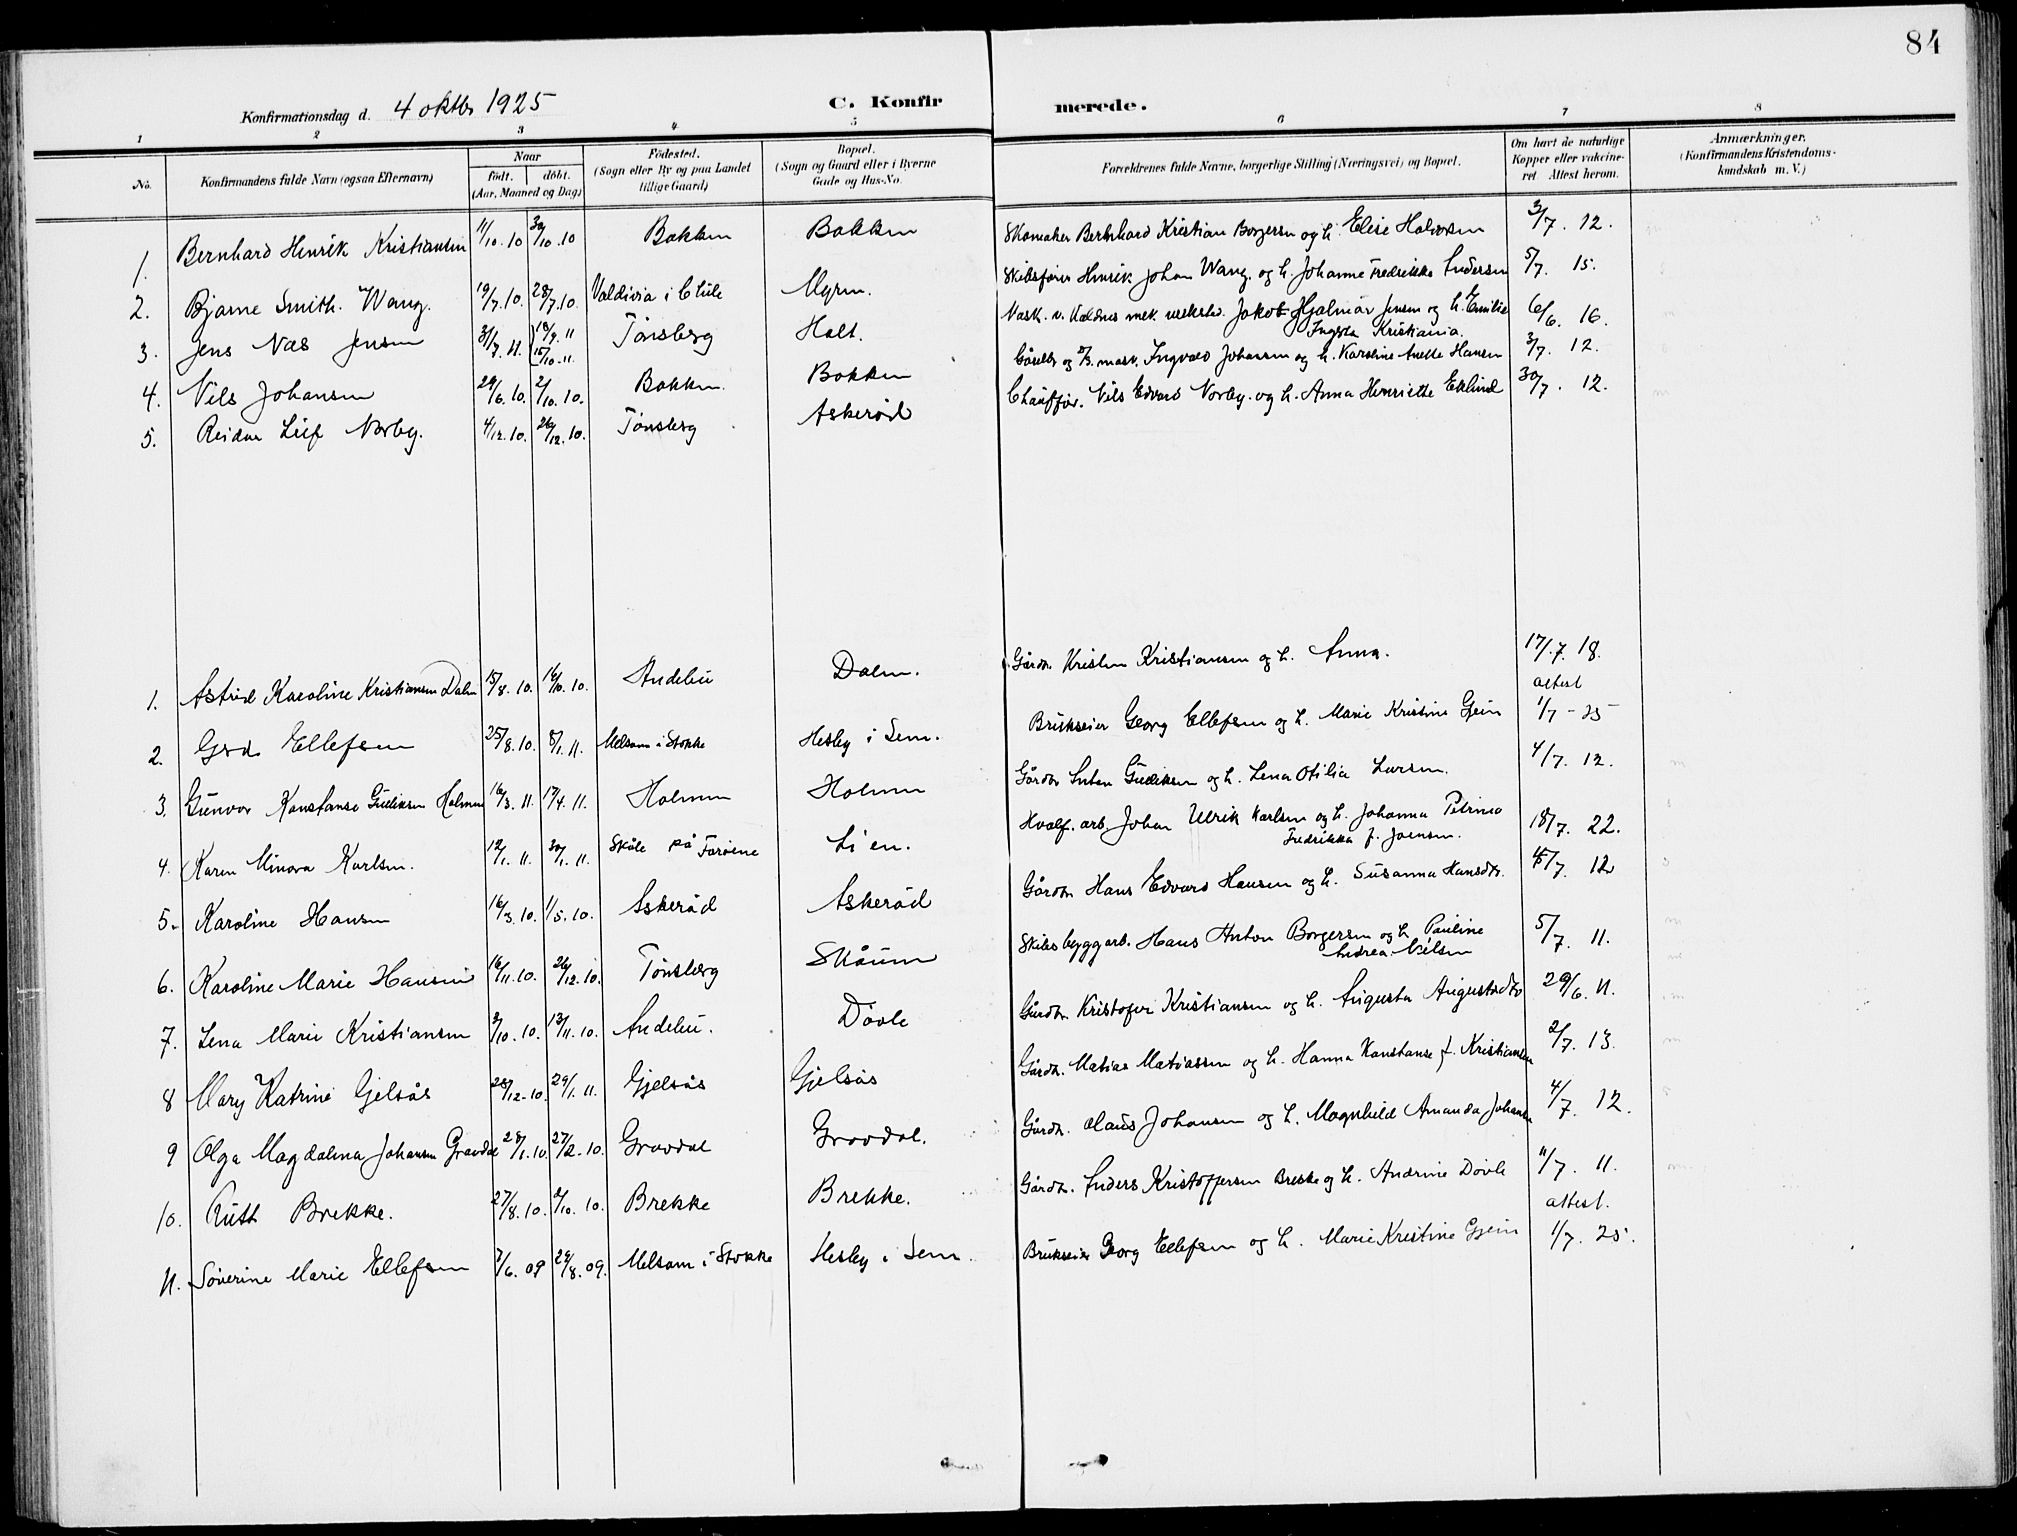 84
Konfirmationsdag d. 4 oktbr 1925
C. Konfirmerede.
1 2 3 4 5 6 7 8
No.
Konfirmandens fulde Navn (ogsaa Efternavn)
Naar
födt. döbt.
(Aar, Maaned og Dag)
Födested.
(Sogn eller By og paa Landet tillige Gaard)
Bopæl.
(Sogn og Gaard eller i Byerne Gade og Hus-No.
Forældrenes fulde Navne, borgerlige Stilling (Næringsvei) og Bopæl.
Om havt de naturlige Kopper eller vakcineret Attest herom.
Anmærkninger.
(Konfirmandens Kristendomskundskab m. V.)
1. Bernhard Henrik Kristiansen 11/10.10 30/10.10 Bakken Bakken Skomaker Bernhard Kristian Borgersen og h. Elise Halvorsen 3/7. 12.
2. Bjarne Smith Wang. 19/7.10. 28/7.10. Valdivia i Chile Myren. Skibsfører Henrik Johan Wang. og h. Johanne Fredrikke Andersen 5/7. 15.
3. Jens Næs Jensen 31/7.11. 18/9.11 15/10.11. Tönsberg Holt. Mask. v. Kaldnes mek. verksted. Jakob Hjalmar Jensen og h. Emilie Ingerta Kristiania. 6/6. 16.
4. Nils Johansen 29/6.10. 2/10.10. Bakken. Bakken Gårdbr og Ingvald Johansen og h. Karoline Anette Hansen 3/7. 12.
5. Reidar Leif Norby. 4/12.10. 26/12.10. Tönsberg Askeröd Chauffør. Nils Edvard Norby. og h. Anna Henriette Eklund 30/7. 12.
1. Astrid Karoline Kristiansen Dalen 15/8.10. 16/10.10. Andebu Dalen. Gårdbr. Kristen Kristiansen og h. Anna. 17/7.18.
2. Gerd Ellefsen 25/8.10. 8/1.11. Melsom i Stokke Hesby i Sem. Brukseier Georg Ellefsen og h. Marie Kristine Gjein attest 1/7-25
3. Gunvor Konstanse Gulliksen Holmen 16/3.11. 17/4.11. Holmen Holmen Gårdbr Anton Gulliksen og h. Lena Otilia Larsen. 4/7. 12.
4. Karen Minora Karlsen. 12/1.11. 30/1.11. Skåle på Færöene Lien. Hvalf. arb. Johan Ulrik Karlsen og h. Johanna Petrina Fredrikka f. Joensen. 18/7. 22.
5. Karoline Hansen 16/3.10. 1/5.10. Askeröd Askeröd Gårdbr. Hans Edvard Hansen og h. Susanna Hansdtr. 15/7. 12
6. Karoline Marie Hansen 16/11.10. 26/12.10. Tönsberg Skåum Skibsbyggarb. Hans Anton Borgersen og h. Pauline Andrea Nielsen 5/7. 11.
7. Lena Marie Kristiansen 3/10.10. 13/11.10. Andebu. Dövle Gårdbr. Kristofer Kristiansen og h. Augusta Augustsdtr 29/6. 11.
8 Mary Katrine Gjelsås 28/12.10. 29/1.11. Gjelsås Gjelsås Gårdbr. Matias Matiassen og h. Hanna Konstanse f. Kristiansen 2/7. 13.
9 Olga Magdalena Johansen Gravdal 28/1.10. 27/2.10. Gravdal Gravdal. Gårdbr. Olaus Johansen og h. Magnhild Amanda Johansen 4/7. 12.
10. Ruth Brekke. 27/8.10. 2/10.10. Brekke Brekke. Gårdbr. Anders Kristoffersen Brekke og h. Andrine Dövle 11/7. 11.
11. Söverine Marie Ellefsen 7/6.09 29/8.09. Melsom i Stokke Hesby i Sem Brukseier Georg Ellefsen og h. Marie Kristine Gjein attest. 1/7. 25.